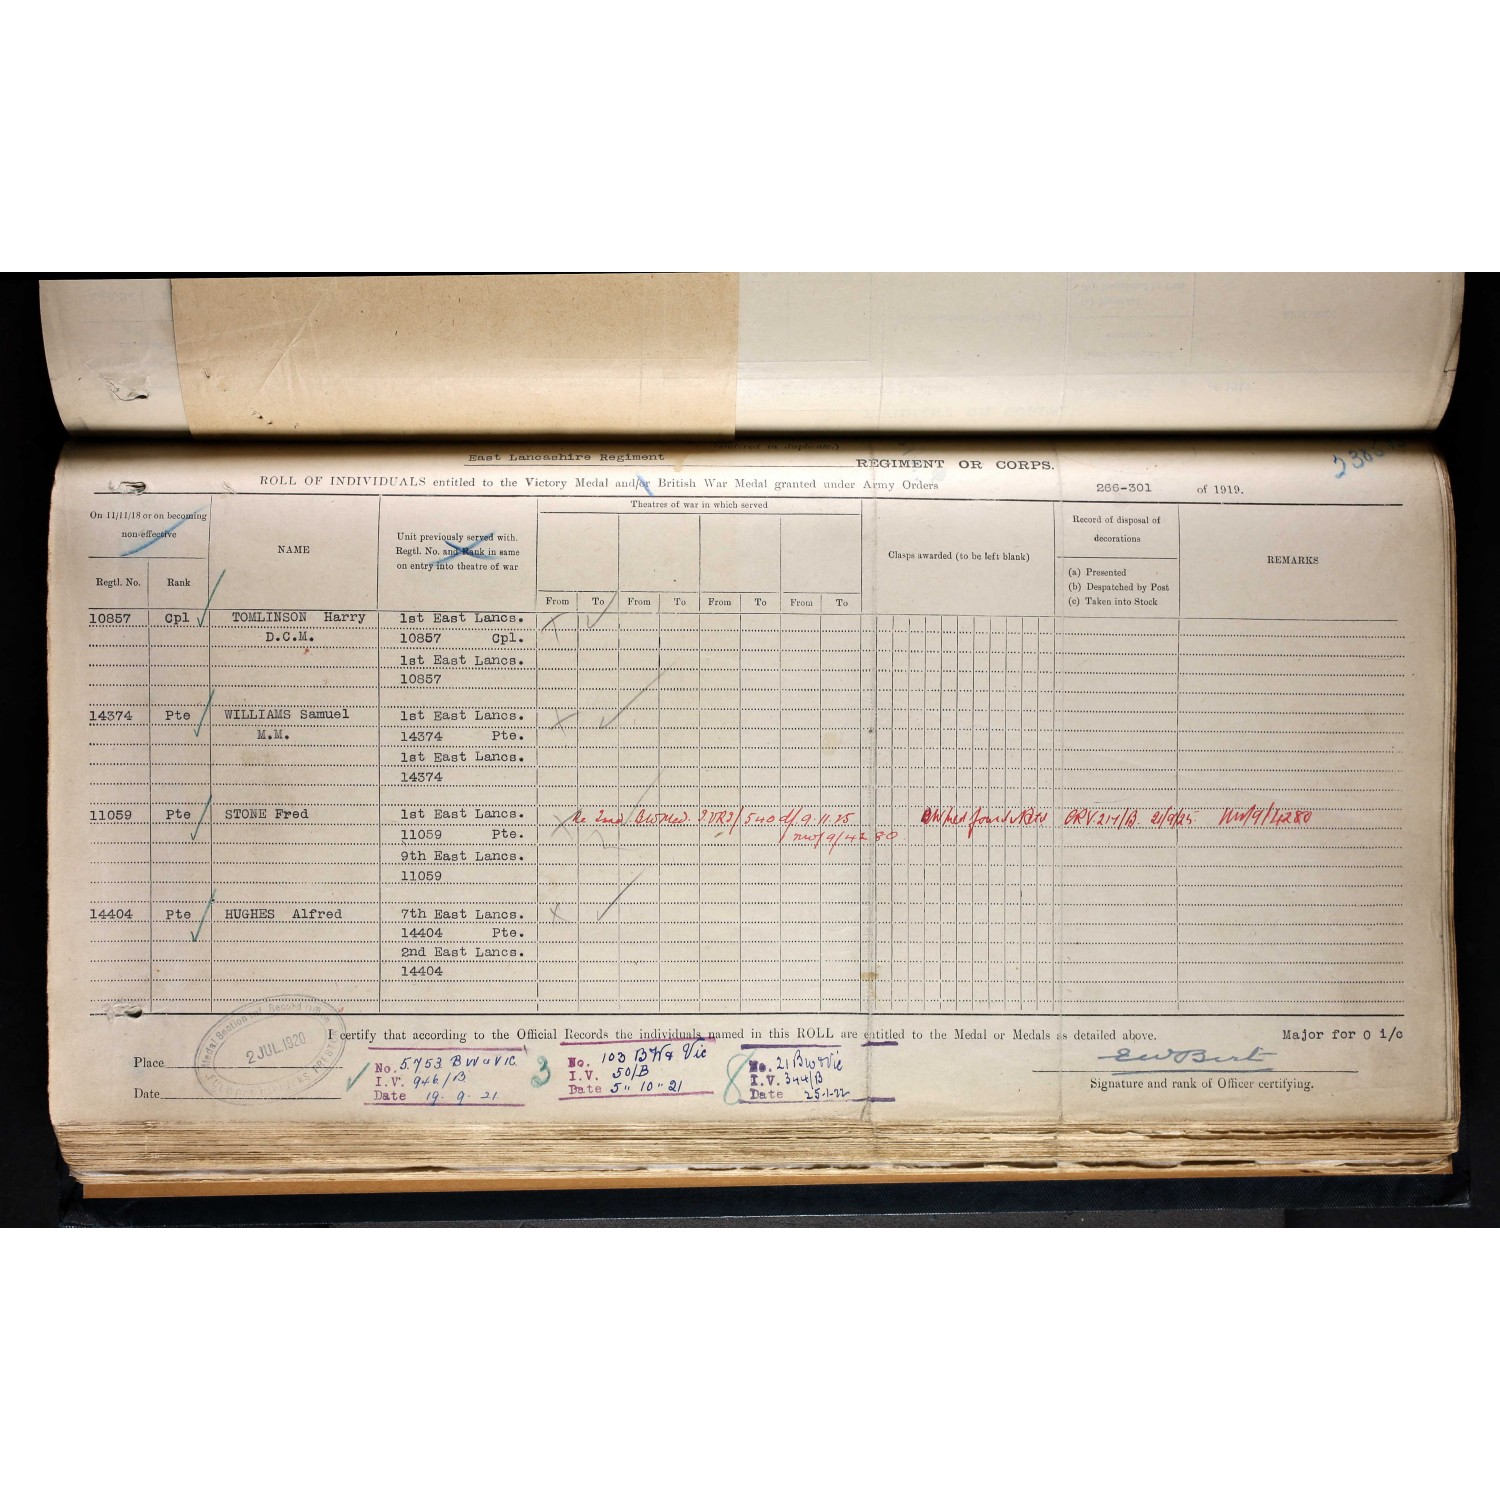 East Lancashire Regiment REGIMENT OR CORPS.
ROLL OF INDIVIDUALS entitled to the Victory Medal and/or British War Medal granted under Army Orders 266-301 of 1919.
On 11/11/18 or on becoming non-effective
Regtl. No. Rank
NAME
Unit previously served with.
Regtl. No. and Rank in same
on entry into theatre of war
Theatres of war in which served
From To From To From To From To
Clasps awarded (to be left blank)
Record of disposal of
decorations
(a) Presented
(b) Despatched by Post
(c) Taken into Stock
REMARKS
10857 Cpl TOMLINSON Harry 1st East Lancs.
D.C.M. 10857 Cpl.
1st East Lancs.
10857
14374 Pte WILLIAMS Samuel 1st East Lancs.
M.M. 14374 Pte.
1st East Lancs.
14374
11059 Pte STONE Fred 1st East Lancs. 2nd 540 9.11.25 21/9/25 /9/4280
11059 Pte. /9/4280
9th East Lancs.
11059
14404 Pte HUGHES Alfred 7th East Lancs.
14404 Pte.
2nd East Lancs.
14404
I certify that according to the Official Records the individuals named in this ROLL are entitled to the Medal or Medals as detailed above.
Major for O i/c
Place
Date
Medal Section
2 JUL 1920
No. 5753 BW & Vic
I.V. 946/B
Date 19.9.21
3
No. 103 BW & Vic
I.V. 50/B
Date 5" 10" 21
8
No. 21 BW & Vic
I.V. 344/B
Date 25.1.22
Signature and rank of Officer certifying.